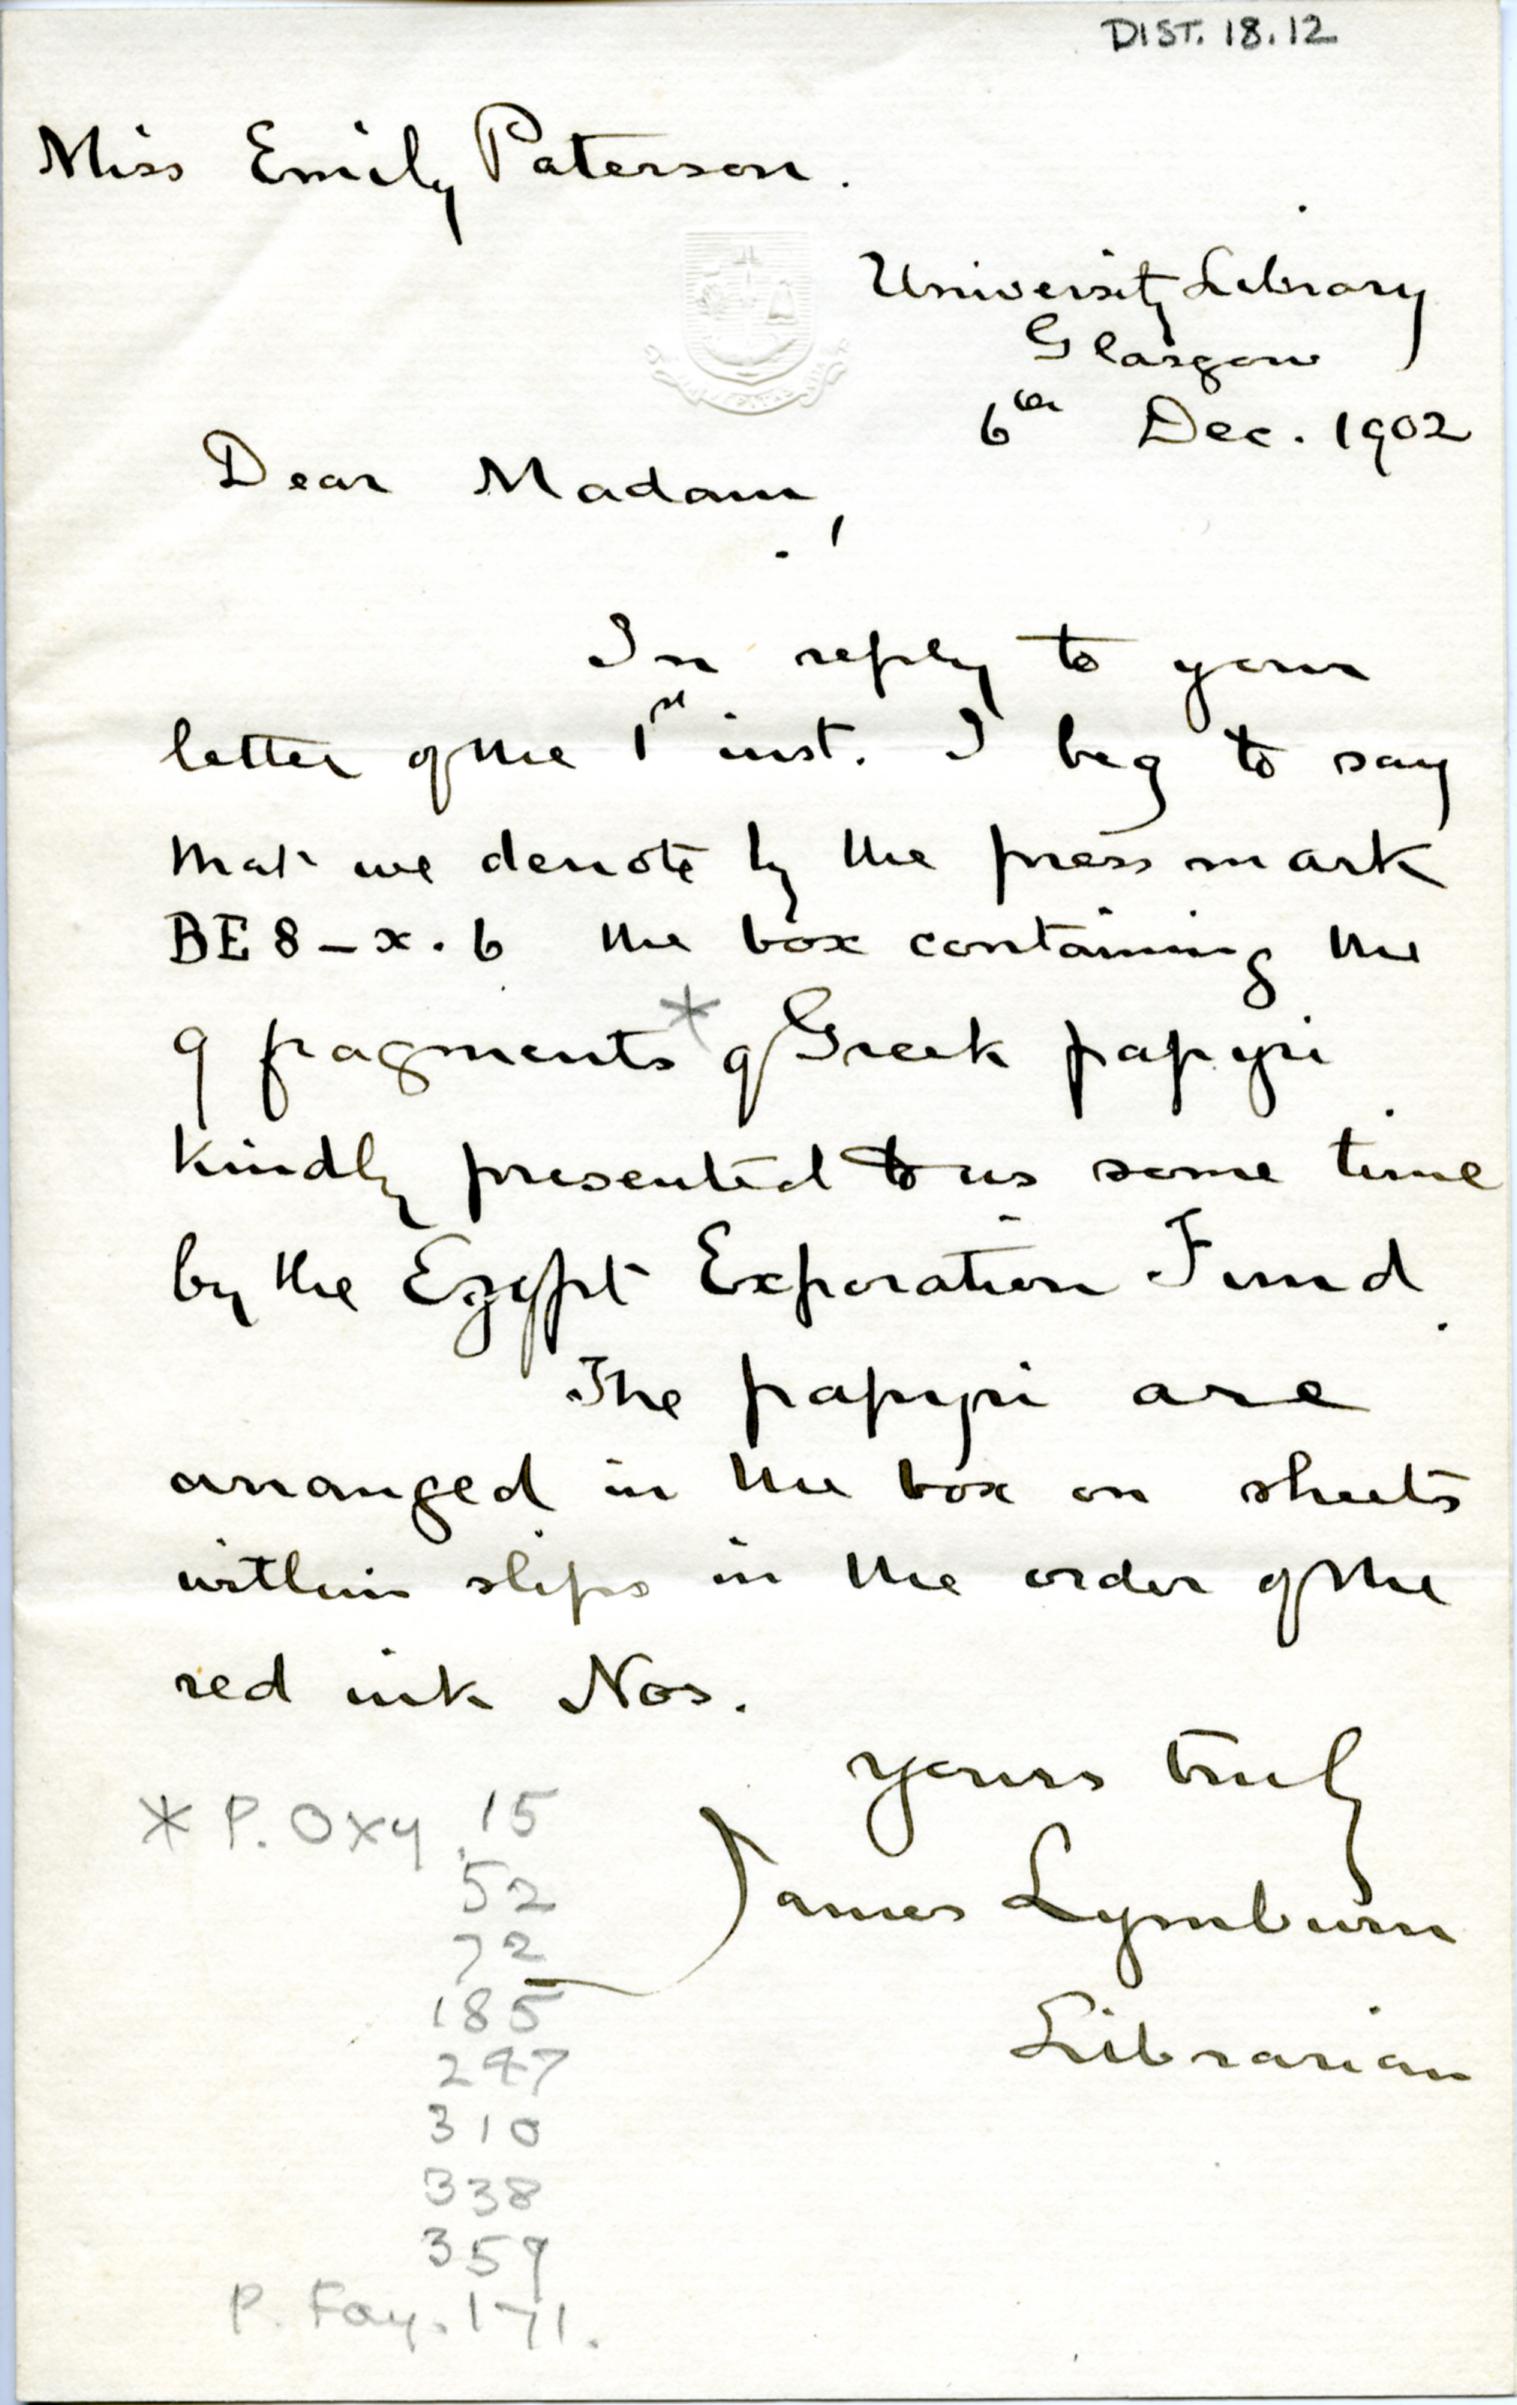 DIST. 18.12
Miss Emily Paterson.
University Library
Glasgow
6th Dec. 1902
Dear Madam,
In reply to your
letter of the 1st inst. I beg to say
that we denote by the press mark
BE 8 – x. 6 the box containing the
9 fragments * of Greek papyri
kindly presented to us some time
by the Egypt Exporation Fund.
The papyri are
arranged in the box on sheets
within slips in the order of the
red ink Nos.
Yours truly
James Lymburn
Librarian
* P. Oxy. 15
52
72
185
247
310
338
359
P. Fay. 171.